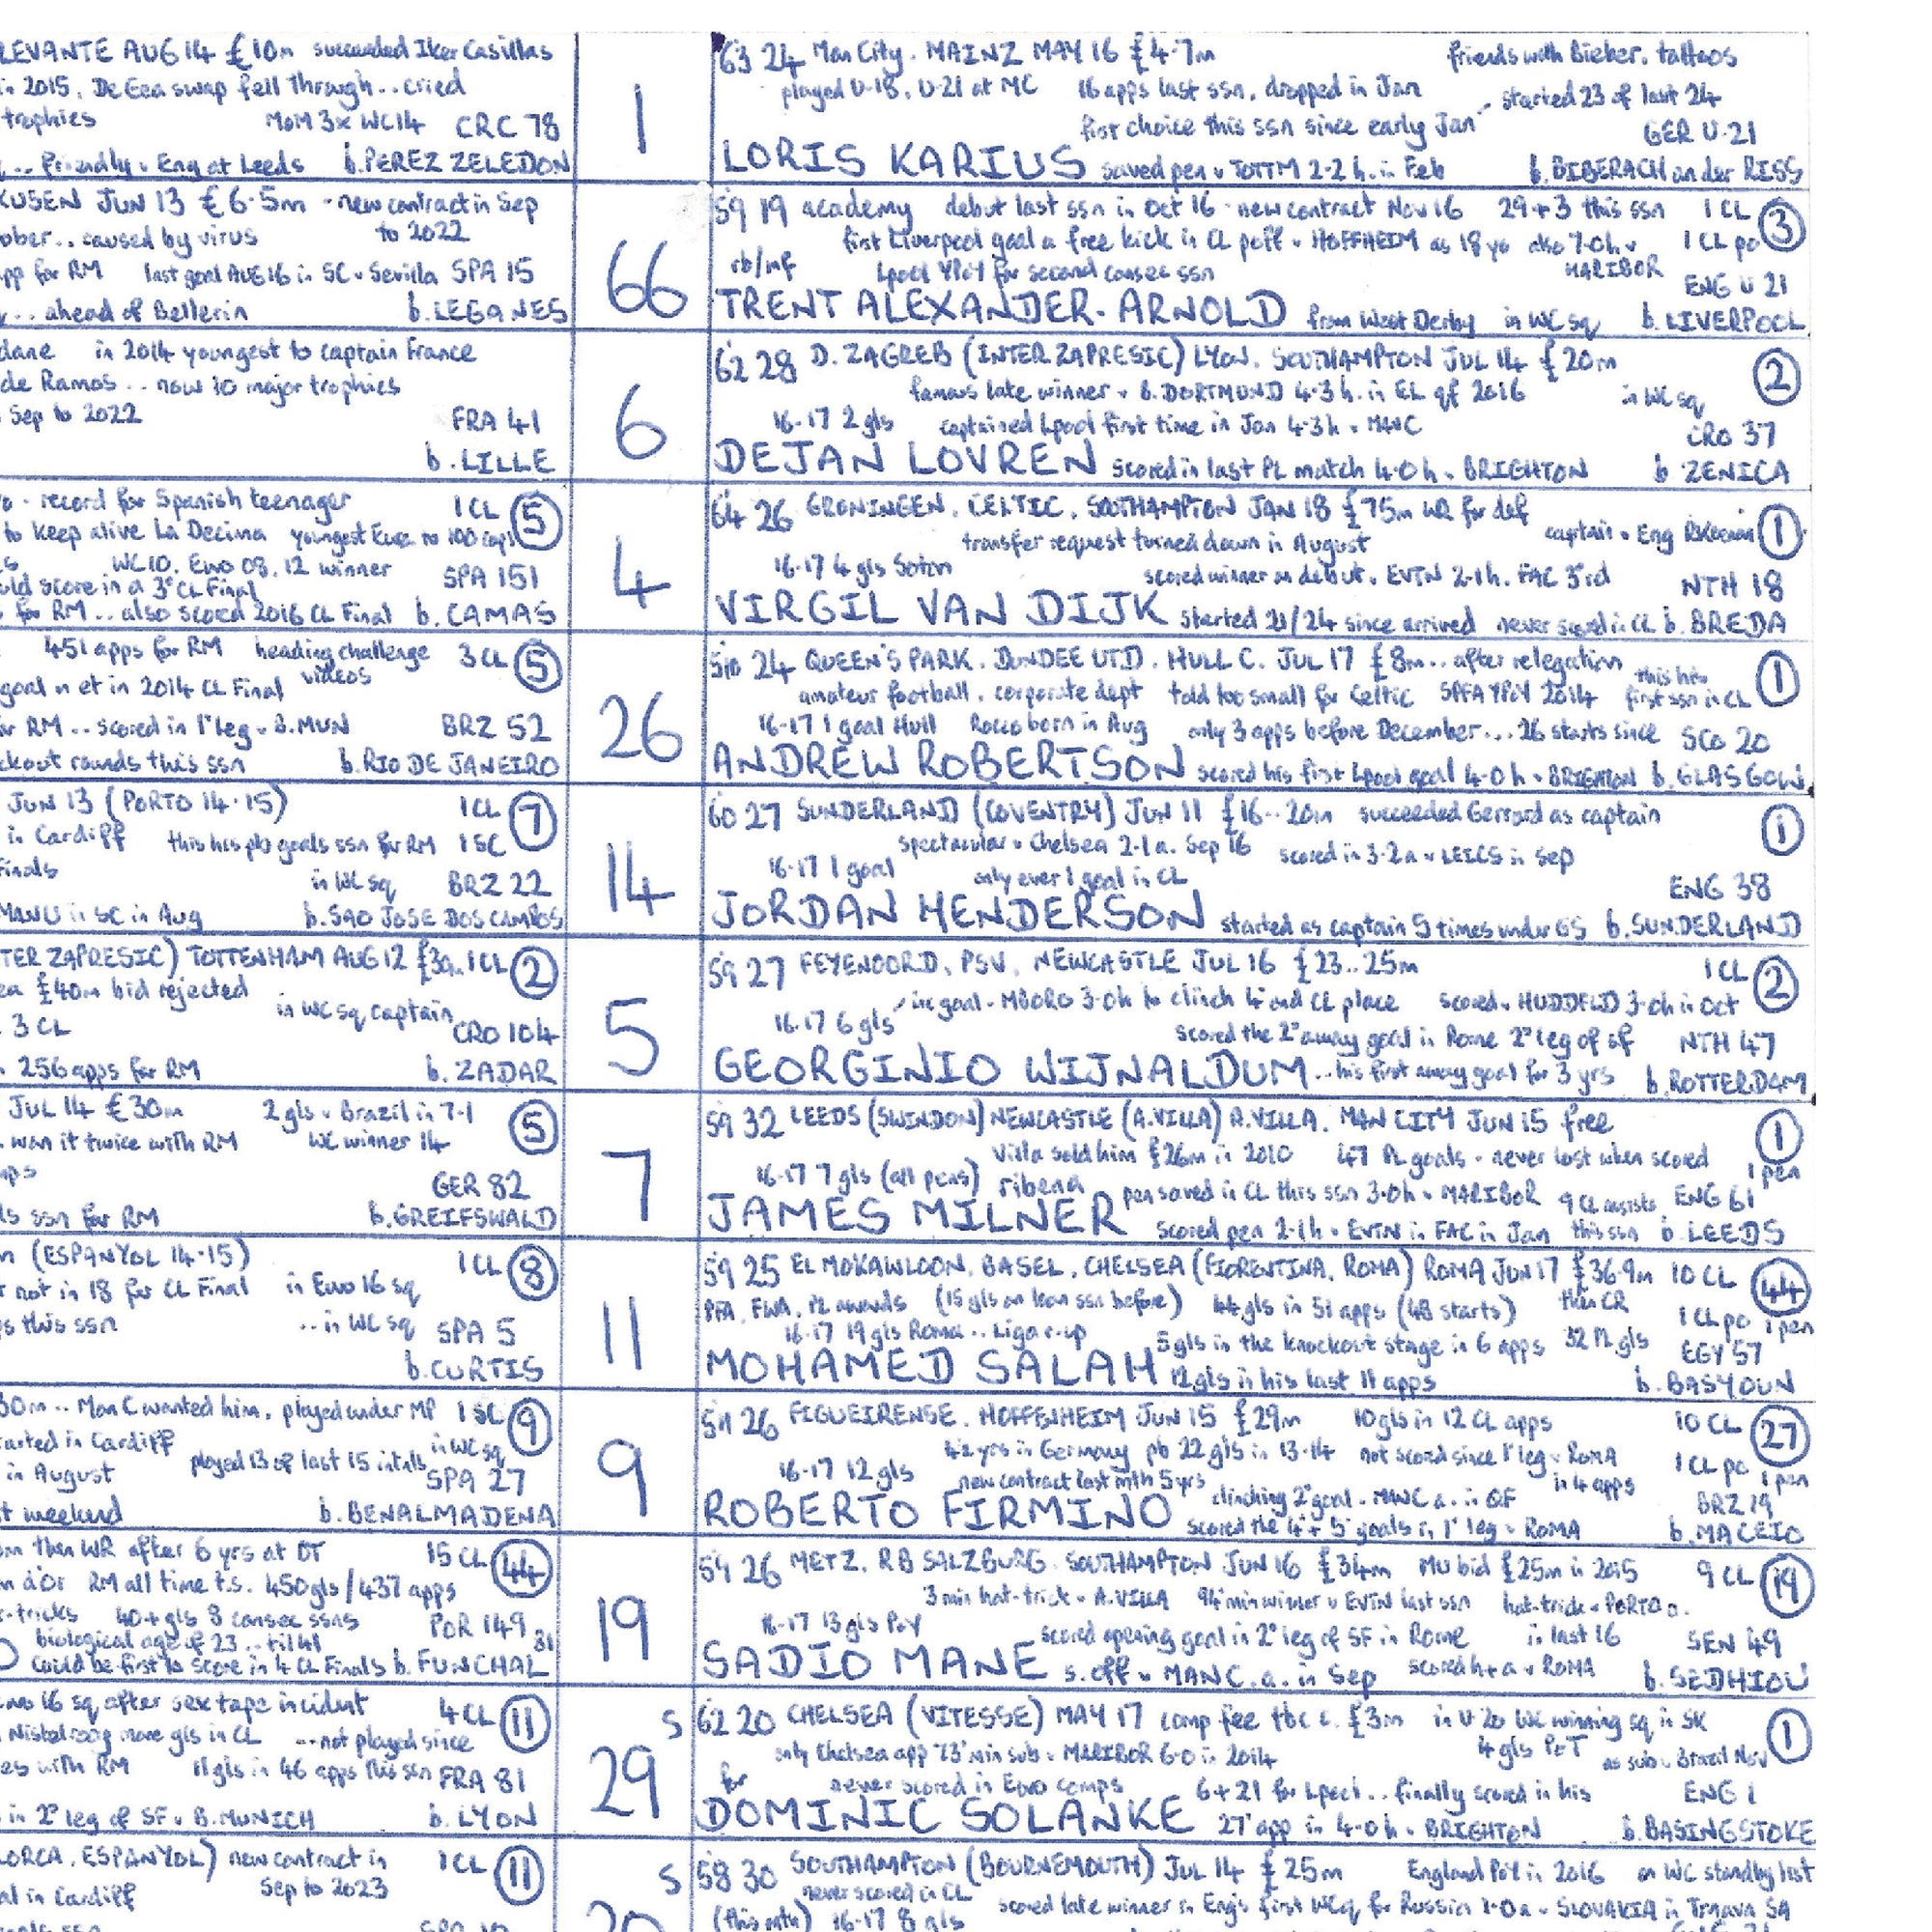 LEVANTE AUG 14 £10m succeeded Iker Casillas
in 2015. De Gea swap fell through.. cried
trophies MoM 3x WC14 CRC 78
... Friendly v Eng at Leeds b.PEREZ ZELEDON
1
6'3 24 Man City. MAINZ MAY 16 £4.7m friends with Bieber. tattoos
played U-18, U-21 at MC 16 apps last ssn, dropped in Jan started 23 of last 24
first choice this ssn since early Jan GER U-21
LORIS KARIUS saved pen v TOTTM 2-2 h. in Feb b. BIBERACH an der RISS
KUSEN JUN 13 £6.5m - new contract in Sep
ober.. caused by virus to 2022
app for RM last goal AUG 16 in SC v Sevilla SPA 15
... ahead of Bellerin b.LEGANES
66
5'9 19 academy debut last ssn in Oct 16 - new contract Nov 16 29+3 this ssn 1 CL 3
first Liverpool goal a free kick in CL poff v HOFFHEIM as 18 yo also 7-0 h v 1 CL po
rb/mf Lpool YPoY for second consec ssn MARIBOR
ENG U 21
TRENT ALEXANDER-ARNOLD from West Derby in WC sq b.LIVERPOOL
dane in 2014 youngest to captain France
de Ramos .. now 10 major trophies
Sep to 2022 FRA 41
b.LILLE
6
6'2 28 D. ZAGREB (INTER ZAPRESIC) LYON. SOUTHAMPTON JUL 14 £20m 2
famous late winner v B. DORTMUND 4-3 h. in EL qf 2016 in WC sq
16-17 2 gls captained Lpool first time in Jan 4-3 h v MANC CRO 37
DEJAN LOVREN scored in last PL match 4-0 h v BRIGHTON b ZENICA
- record for Spanish teenager 1 CL 5
to keep alive La Decima youngest Euro to 100 caps
WC10, Euro 08, 12 winner SPA 151
uld score in a 3° CL Final
for RM .. also scored 2016 CL Final b. CAMAS
4
6'4 26 GRONINGEN. CELTIC. SOUTHAMPTON JAN 18 £75m WR for def 1
transfer request turned down in August captain v Eng
16-17 4 gls Soton scored winner on debut v EVTN 2-1 h. FAC 3rd NTH 18
VIRGIL VAN DIJK started 21/24 since arrived never scored in CL b. BREDA
451 apps for RM heading challenge 3 CL 5
goal n et in 2014 CL Final videos
for RM .. scored in 1° leg v B.MUN BRZ 52
ckout rounds this ssn b.RIO DE JANEIRO
26
5'10 24 QUEEN'S PARK. DUNDEE UTD. HULL C. JUL 17 £8m.. after relegation this his 1
amateur football, corporate dept told too small for Celtic SPFA YPoY 2014 first ssn in CL
16-17 1 goal Hull Rocco born in Aug only 3 apps before December... 26 starts since SCO 20
ANDREW ROBERTSON scored his first Lpool goal 4-0 h v BRIGHTON b.GLASGOW
JUN 13 (PORTO 14-15) 1 CL 7
in Cardiff this his pb goals ssn for RM 1 SC
finals in WC sq BRZ 22
MANU in SC in Aug b.SAO JOSE DOS CAMPOS
14
6'0 27 SUNDERLAND (COVENTRY) JUN 11 £16..20m succeeded Gerrard as captain 1
spectacular v Chelsea 2-1 a. Sep 16 scored in 3-2 a v LEICS in Sep
16-17 1 goal only ever 1 goal in CL ENG 38
JORDAN HENDERSON started as captain 5 times under GS b.SUNDERLAND
TER ZAPRESIC) TOTTENHAM AUG 12 1 CL 2
ea £40m bid rejected in WC sq captain
3 CL CRO 104
256 apps for RM b. ZADAR
5
5'9 27 FEYENOORD. PSV. NEWCASTLE JUL 16 £23..25m 1 CL 2
inc goal v MBORO 3-0 h to clinch 4° and CL place scored v HUDDFLD 3-0 h in Oct
16-17 6 gls scored the 2° away goal in Rome 2° leg of sf NTH 47
GEORGINIO WIJNALDUM ...his first away goal for 3 yrs b.ROTTERDAM
JUL 14 £30m 2 gls v Brazil in 7-1 5
won it twice with RM WC winner 14
GER 82
ssn for RM b.GREIFSWALD
7
5'9 32 LEEDS (SWINDON) NEWCASTLE (A.VILLA) A.VILLA. MAN CITY JUN 15 free 1
Villa sold him £26m in 2010 47 PL goals - never lost when scored 1 pen
16-17 7 gls (all pens) ribena pen saved in CL this ssn 3-0 h v MARIBOR 9 CL assists ENG 61
JAMES MILNER scored pen 2-1 h v EVTN in FAC in Jan this ssn b. LEEDS
(ESPANYOL 14-15) 1 CL 8
not in 18 for CL Final in Euro 16 sq
this ssn .. in WC sq SPA 5
b.CURTIS
11
5'9 25 EL MOKAWLOON. BASEL. CHELSEA (FIORENTINA, ROMA) ROMA JUN 17 £36.9m 10 CL 44
PFA, FWA, PL awards (15 gls on loan ssn before) 44 gls in 51 apps (48 starts) then CR 1 CL po 1 pen
16-17 19 gls Roma .. Liga r-up 5 gls in the knockout stage in 6 apps 32 PL gls EGY 57
MOHAMED SALAH 12 gls in his last 11 apps b. BASYOUN
30m .. Man C wanted him, played under MP 1 SC 9
tarted in Cardiff played 13 of last 15 intnls in WC sq
in August SPA 27
t weekend b.BENALMADENA
9
5'11 26 FIGUEIRENSE. HOFFENHEIM JUN 15 £29m 10 gls in 12 CL apps 10 CL 27
4½ yrs in Germany pb 22 gls in 13-14 not scored since 1° leg v ROMA 1 CL po 1 pen
16-17 12 gls new contract last mth 5 yrs in 4 apps
clinching 2° goal v MANC a. in QF BRZ 19
ROBERTO FIRMINO scored the 4° + 5° goals in 1° leg v ROMA b.MACEIO
then WR after 6 yrs at OT 15 CL 44
n d'Or RM all time t.s. 450 gls/437 apps
r-tricks 40+ gls 8 consec ssns POR 149
biological age of 23 .. til 41 81
could be first to score in 4 CL Finals b. FUNCHAL
19
5'9 26 METZ. RB SALZBURG. SOUTHAMPTON JUN 16 £34m MU bid £25m in 2015 9 CL 19
3 min hat-trick v A.VILLA 94° min winner v EVTN last ssn hat-trick v PORTO a.
16-17 13 gls PoY scored opening goal in 2° leg of SF in Rome in last 16 SEN 49
SADIO MANE s.off v MANC. a. in Sep scored h+a v ROMA b.SEDHIOU
16 sq after sex tape incident 4 CL 11
Nistelrooy more gls in CL ..not played since
es with RM 11 gls in 46 apps this ssn FRA 81
in 2° leg of SF v B.MUNICH b. LYON
29
S 6'2 20 CHELSEA (VITESSE) MAY 17 comp fee tbc c. £3m in U-20 WC winning sq in SK 1
only Chelsea app 73° min sub v MARIBOR 6-0 in 2014 4 gls PoT as sub v Brazil Nov
for never scored in Euro comps 6+21 for Lpool.. finally scored in his ENG 1
DOMINIC SOLANKE 27° app in 4-0 h v BRIGHTON b.BASINGSTOKE
LORCA, ESPANYOL) new contract in 1 CL 11
al in Cardiff Sep to 2023
20
S 5'8 30 SOUTHAMPTON (BOURNEMOUTH) JUL 14 £25m England PoY in 2016 on WC standby list
never scored in CL scored late winner in Eng's first WCq for Russia 1-0 a v SLOVAKIA in Trnava SA
(this mth) 16-17 8 gls